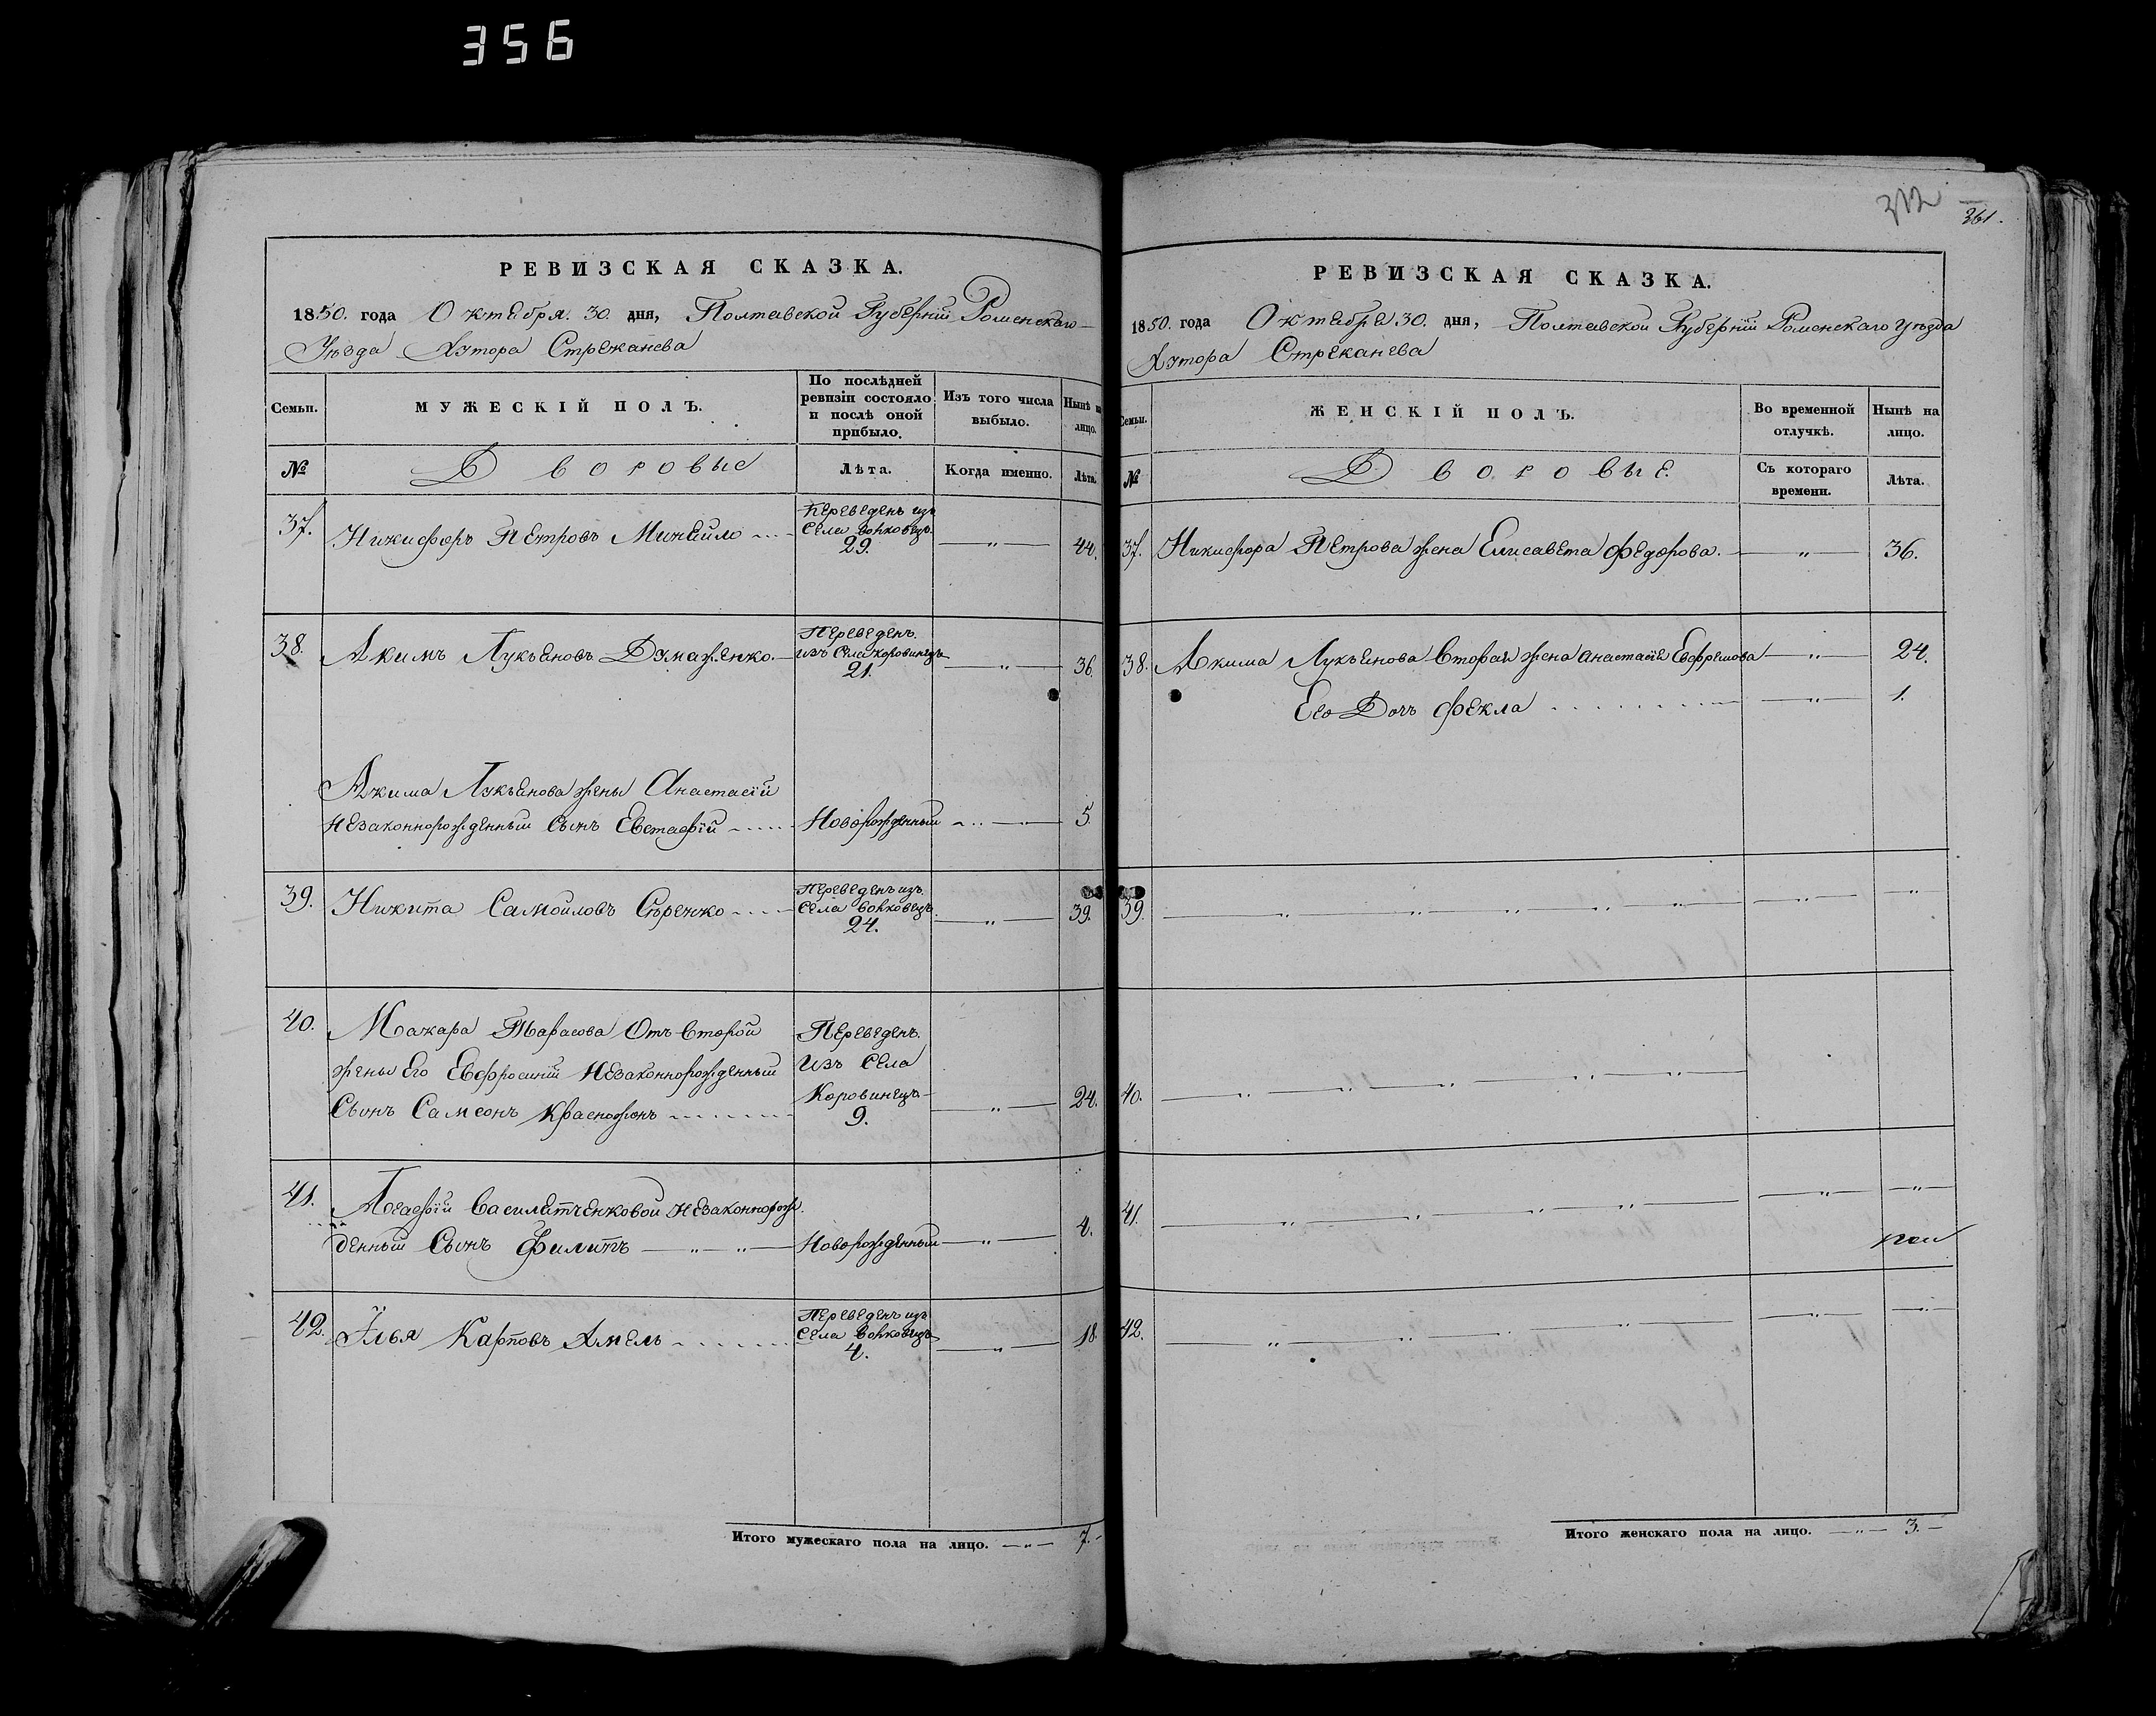 356
361.
РЕВИЗСКАЯ СКАЗКА.
1850. года Октября. 30. дня, Полтавской Губерніи Роменскаго
Уѣзда Хутора Стрежанева
Семьи.
МУЖЕСКІЙ ПОЛЪ.
По послѣдней ревизіи состояло и послѣ оной прибыло.
Изъ того числа выбыло.
Нынѣ на лицо.
№
Дворовые
Лѣта.
Когда именно.
Лѣта.
37. Никифоръ Петровъ Минайло
Переведенъ изъ
Села Волковецъ.
29.
44.
38. Акимъ Лукъяновъ Думаженко.
Переведенъ.
изъ Села Коровинецъ
21.
36.
Акима Лукъянова жены Анастасіи
Незаконнорожденный Сынъ Евстафій
Новорожденный
5.
39. Никита Самойловъ Сѣренко
Переведенъ изъ
Села Волковецъ
24.
39.
40. Макара Тарасова Отъ Второй
жены Его Евфросиніи Незаконнорожденный
Сынъ Самсонъ
Переведенъ.
Изъ Села
Коровинецъ
9.
24.
41. Агафіи Василътченковой Незаконнорож
денный Сынъ Филипъ
Новорожденный
4.
42. Илья Карповъ Хмель
Переведенъ изъ
Села Волковецъ
4.
18.
Итого мужескаго пола на лицо. 7.
РЕВИЗСКАЯ СКАЗКА.
1850. года Октября 30. дня, Полтавской Губерніи Роменскаго уѣзда
Хутора Стреканева
Семьи.
ЖЕНСКІЙ ПОЛЪ.
Во временной отлучкѣ.
Нынѣ на лицо.
№
Дворовые.
Съ котораго времени.
Лѣта.
37. Никифора Петрова жена Елисавета Федорова. 36.
38. Акима Лукъянова Вторая жена Анастасія Евфремова 24.
Его Дочь Фекла 1.
39.
40.
41.
42.
Итого женскаго пола на лицо. 3.